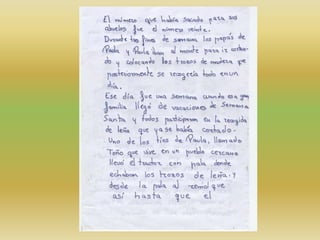 El número que había sacado para sus
abuelos fue el número veinte.
Durante los fines de semana los papás de
Paula y Paula iban al monte para ir cortan-
do y colocando los trozos de madera que
posteriormente se recogería todo en un
día.
Ese día fue una semana cuando esa gran
familia llegó de vacaciones de Semana
Santa y todos participaron en la recogida
de leña que ya se había cortado.
Uno de los tíos de Paula, llamado
Toño que vive en un pueblo cercano
llevó el tractor con pala donde
echaban los trozos de leña. Y
desde la pala al remolque
así hasta que el